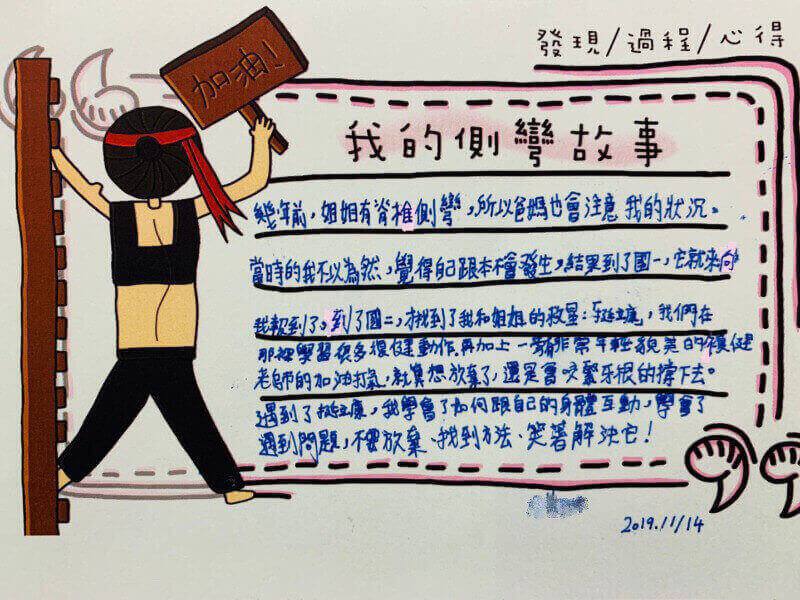 發現/過程/心得
加油!
我的側彎故事
幾年前,姐姐有脊椎側彎,所以爸媽也會注意我的狀況。
當時的我不以為然,覺得自己跟本不會發生,結果到了國一,它就來向
我報到了。到了國二,才找到了我和姐姐的救星:挺立庭,我們在
那裡學習很多復健動作,再加上一群非常年輕貌美的復健
老師的加油打氣,就算想放棄了,還是會咬緊牙根的撐下去。
遇到了挺立庭,我學會了如何跟自己的身體互動,學會了
遇到問題,不要放棄、找到方法、笑著解決它!
2019.11/14